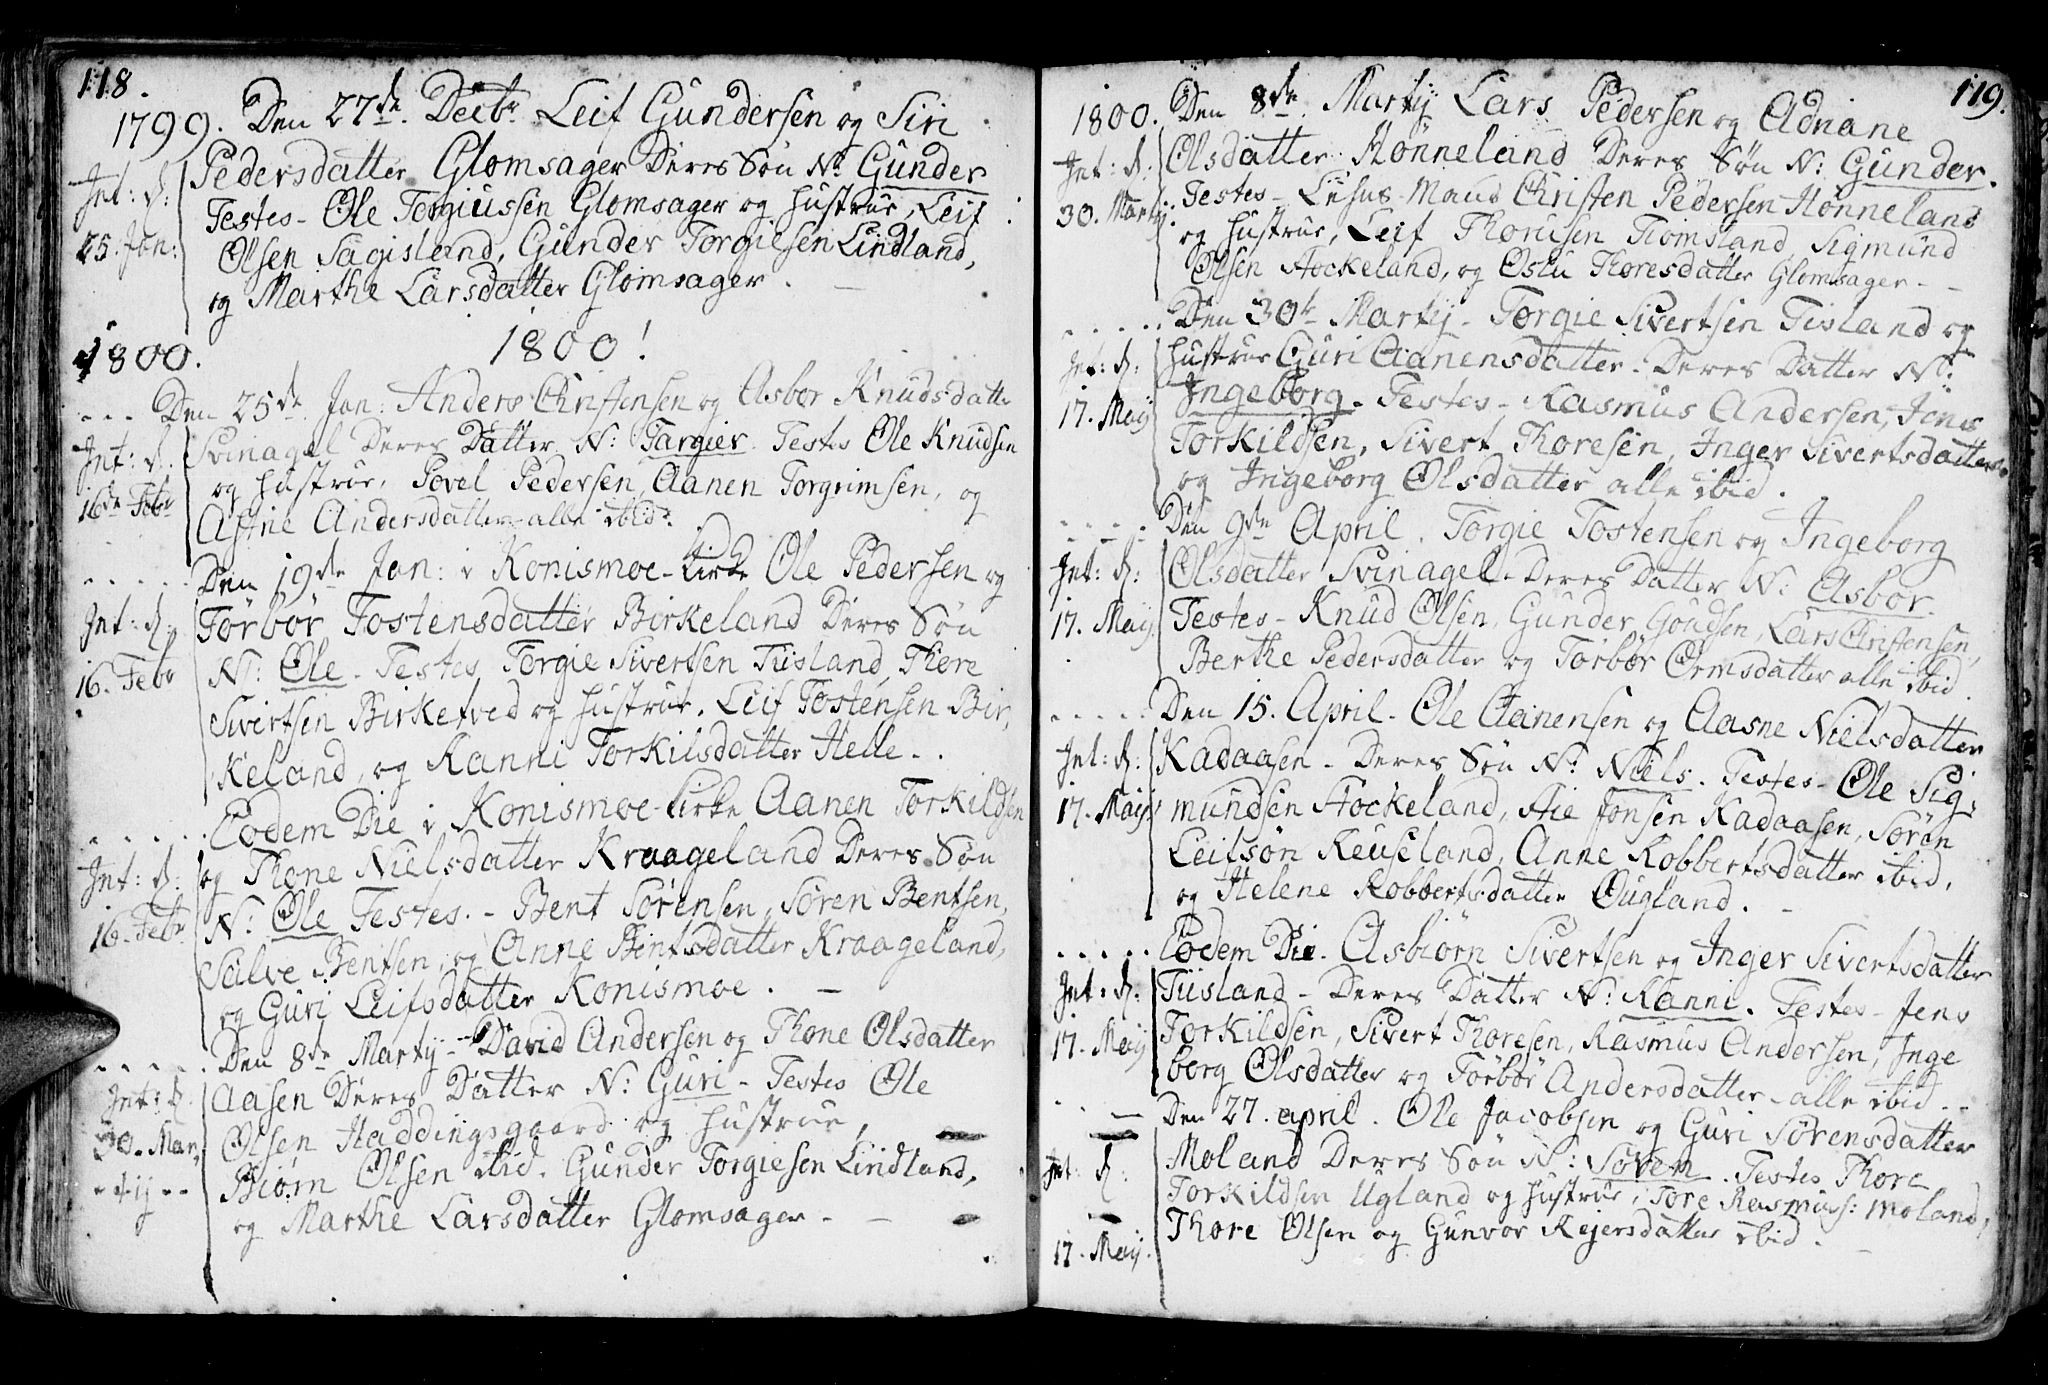 118.
1799. Den 27de Decbr Leif Gundersen og Siri
Pedersdatter Glomsager Deres Søn N: Gunder
Int: d:
Testes - Ole Torgiussen Glomsager og hustrue, Leif
25. Jan:
Olsen Sagisland, Gunder Torgiesen Lindland,
og Marthe Larsdatter Glomsager. -
1800. 1800!
Den 25de Jan: Anders Christensen og Asbor Knudsdatter
Int: d. Svinagel Deres Datter N: Targier. Testes Ole Knudsen
og hustrue, Povel Pedersen, Aanen Torgrimsen, og
16de Febr
Astne Andersdatter - alle ibid:
Den 19de Jan: i Konismoe-kirke Ole Pedersen og
Int: d: Torbør Tostensdatter Birkeland Deres Søn
16. Febr N: Ole. Testes Torgie Sivertsen Tiisland, Thore
Sivertsen Birketved og hustrue. Leif Tostensen Bir,
keland, og Ranni Torkilsdatter Helle - .
Eodem Die i Konismoe-kirke Aanen Torkildsen
Int: d: og Thone Nielsdatter Kraageland Deres Søn
16. Febr N: Ole Testes. - Bent Sørensen, Søren Bentsen,
Salve Bentsen, og Anne Bentsdatter Kraageland,
og Guri Leifsdatter Konismoe. -
Den 8de Martij - David Andersen og Thone Olsdatter
Int: d. Aasen Deres Datter N: Guri - Testes Ole
30. Mar, Olsen Haddingsgaard og hustrue,
- - tij - - Biørn Olsen ibid. Gunder Torgiesen Lindland,
og Marthe Larsdatter Glomsager - -
119.
1800. Den 8de Martij Lars Pedersen og Adriane
Int: d: Olsdatter Hønneland Deres Søn N: Gunder.
30. Martij: Testes - Lehns-Mand Christen Pedersen Hønneland
og hustrue, Leif Thorusen Tiomsland, Sigmund
Olsen Stockeland, og Oslu Thoresdatter Glomsager - -
Den 30te Martij - Torgie Sivertsen Tisland og
Int: d: hustrue Guri Aanensdatter - Deres Datter N:
17. May Ingeborg - Testes - Rasmus Andersen, Jens
Torkildsen, Sivert Thoresen, Inger Sivertsdatter
og Ingeborg Olsdatter alle ibid.
Den 9de April. Torgie Tostensen og Ingeborg
Int: d: Olsdatter Svinagel - Deres Datter N: Asbor.
17. May. Testes - Knud Olsen, Gunder Goudsen, Lars Christensen,
Berthe Pedersdatter og Torbør Ormsdatter alle ibid.
Den 15. April - Ole Aanensen og Aasne Nielsdatter
Int: d: Kadaasen - Deres Søn N: Niels. Testes - Ole Sig,
17. May: mundsen Stockeland, Aie Jonsen Kadaasen, Søren
Leifsøn Reuseland, Anne Robbertsdatter ibid,
og Helene Robbertsdatter Øugland. -
Eodem Die. Asbiørn Sivertsen og Inger Sivertsdatter
Int: d: Tiisland - Deres Datter N: Ranni. Testes - Jens
17. May Torkildsen, Sivert Thoresen, Rasmus Andersen, Inge
borg Olsdatter og Torbør Andersdatter - alle ibid - -
Den 27. april. Ole Jacobsen og Guri Sørensdatter
Int: d: Moland Deres Søn N: Søren. Testes Thore
Torkildsen Ugland og hustrue, Tore Rasmuss: Moland,
17. May. Thore Olsen og Gunvor Rejersdatter ibid. -